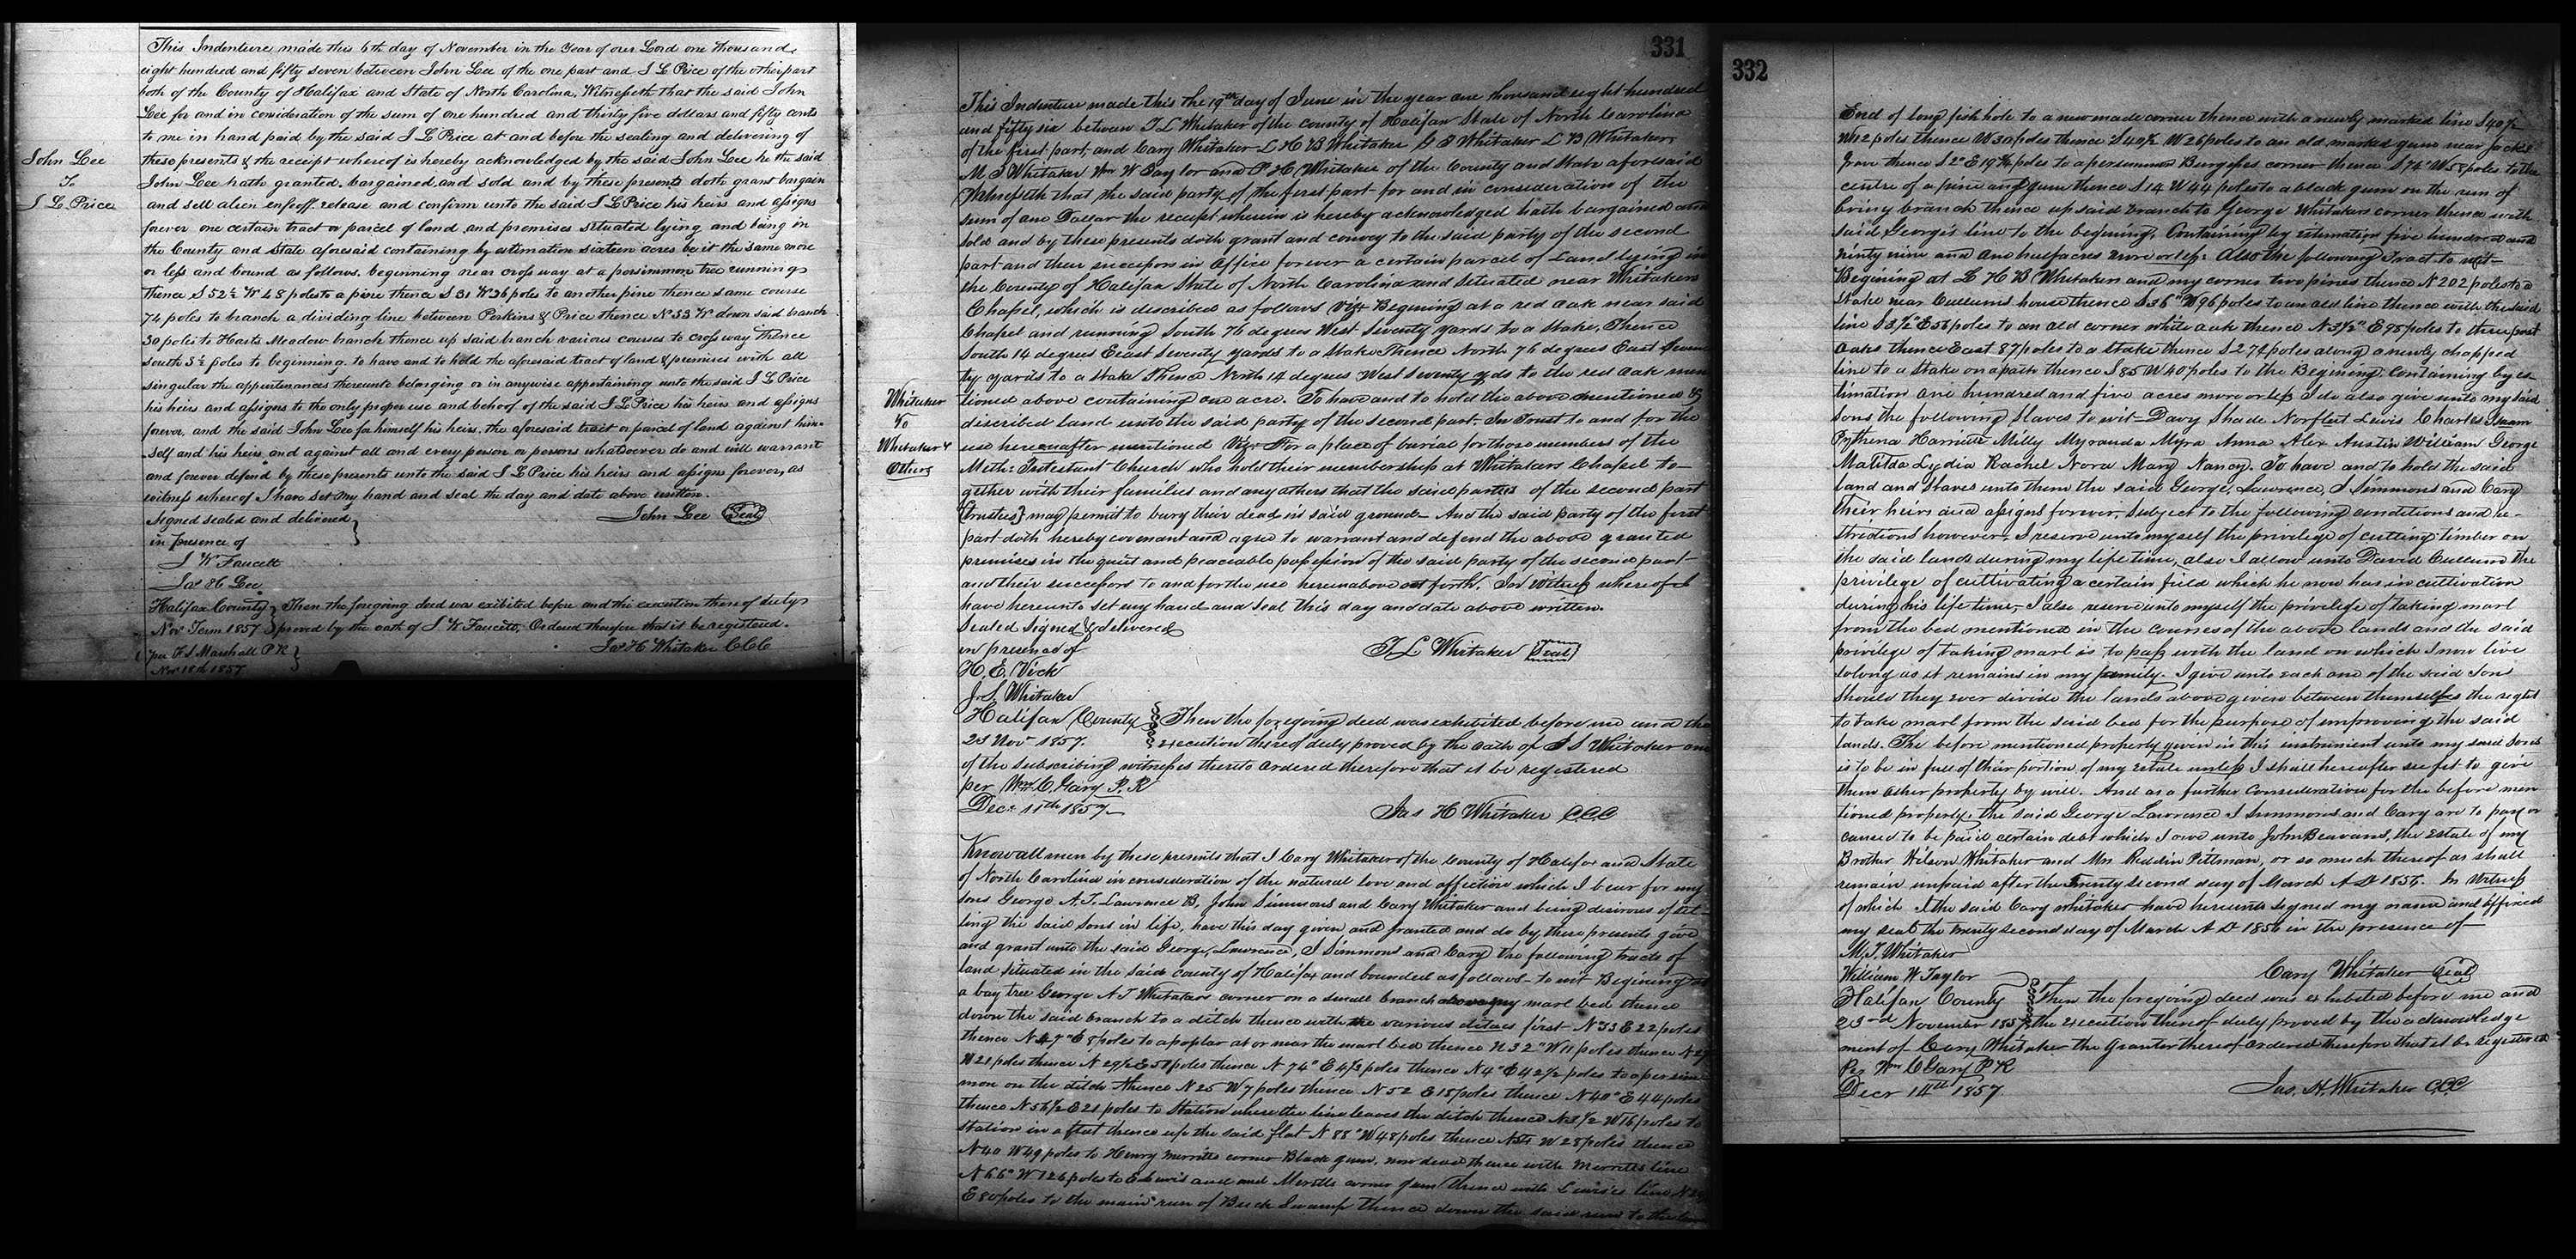 This Indenture made this 6th day of November in the Year of our Lord one thousand
eight hundred and fifty seven between John Lee of the one part and J L Price of the other part
both of the County of Halifax and State of North Carolina, Witnesseth that the said John
Lee for and in consideration of the sum of one hundred and thirty five dollars and fifty cents
to me in hand paid by the said J L Price at and before the sealing and delivering of
these presents & the receipt whereof is hereby acknowledged by the said John Lee he the said
John Lee hath granted, bargained and sold and by these presents doth grant bargain
and sell alien enfeoff release and confirm unto the said J L Price his heirs and assigns
forever one certain tract or parcel of land and premises situated lying and being in
the County and State aforesaid containing by estimation sixteen acres be it the same more
or less and bound as follows, beginning near cross way at a persimmon tree running
thence S 52½ W 48 poles to a pine thence S 31 W 36 poles to another pine thence same course
74 poles to branch a dividing line between Perkins & Price thence N 33 W down said branch
30 poles to Harts Meadow branch thence up said branch various courses to cross way thence
South 3½ poles to beginning. to have and to hold the aforesaid tract of land & premises with all
singular the appurtenances thereunto belonging or in anywise appertaining unto the said J L Price
his heirs and assigns to the only proper use and behoof of the said J L Price his heirs and assigns
forever, and the said John Lee for himself his heirs, the aforesaid tract or parcel of land against him-
self and his heirs and against all and every person or persons whatsoever do and will warrant
and forever defend by these presents unto the said J L Price his heirs and assigns forever, as
witness whereof I have set my hand and seal the day and date above written.
John Lee
To
J L Price
Signed sealed and delivered
in presence of
John Lee Seal
J W Faucett
Jas H Lee
Halifax County } Then the foregoing deed was exibited before and the execution thereof duly
Nov Term 1857 } proved by the oath of J W Faucett, Ordered therefore that it be registered.
per F S Marshall P R
Jas H Whitaker CCC
Nov 18th 1857
331
This Indenture made this the 19th day of June in the year one thousand eight hundred
and fifty six between T L Whitaker of the county of Halifax State of North Carolina
of the first part, and Cary Whitaker L H B Whitaker G T Whitaker L B Whitaker
M T Whitaker Wm W Taylor and P H Whitaker of the County and State aforesaid
Witnesseth that the said party of the first part for and in consideration of the
sum of one Dollar the receipt wherein is hereby acknowledged hath bargained and
sold and by these presents doth grant and convey to the said party of the second
part and their successors in Office forever a certain parcel of Land lying in
the County of Halifax State of North Carolina and situated near Whitakers
Chapel, which is described as follows Viz Begining at a red oak near said
Chapel and running South 76 degrees West Seventy yards to a Stake, Thence
South 14 degrees East Seventy yards to a Stake Thence North 76 degrees East Seven
ty yards to a Stake Thence North 14 degrees West Seventy yds to the red oak men
tioned above containing one acre. To have and to hold the above mentioned &
discribed land unto the said party of the second part. In Trust to and for the
use hereinafter mentioned Viz For a place of burial for those members of the
Meth: Protestant Church who hold their membership at Whitakers Chapel to-
gether with their families and any others that the said parties of the second part
(trustees) may permit to bury their dead in said ground. And the said party of the first
part doth hereby covenant and agree to warrant and defend the above granted
premises in the quiet and peaceable possession of the said party of the second part
and their successors to and for the use hereinabove set forth. In Witness whereof I
have hereunto set my hand and Seal this day and date above written.
Whitaker
to
Whitaker &
Others
Sealed Signed & delivered
in presence of
T L Whitaker Seal
H. E. Vick
J. S. Whitaker
Halifax County } Then the foregoing deed was exhibited before me and the
23 Nov 1857. } execution thereof duly proved by the oath of J S Whitaker one
of the Subscribing witnesses thereto Ordered therefore that it be registered
per Wm C. Gary P. R
Decr 11th 1857
Jas H Whitaker C.C.C
Know all men by these presents that I Cary Whitaker of the County of Halifax and State
of North Carolina in consideration of the natural love and affection which I bear for my
sons George A. T. Lawrence B, John Simmons and Cary Whitaker and being desirous of set-
ting the said sons in life, have this day given and granted and do by these presents give
and grant unto the said George, Lawrence, J Simmons and Cary the following tracts of
land situated in the said county of Halifax and bounded as follows- to wit Begining at
a bay tree George A T Whitakers corner on a small branch above my marl bed thence
down the said branch to a ditch thence with the various first N 33 E 22 poles
thence N 47° E 8 poles to a poplar at or near the marl bed thence N 32° W 11 poles thence N 27
W 21 poles thence N 29½ E 51 poles thence N 74° E 43 poles thence N 4° E 42½ poles to a persim
mon on the ditch thence N 25 W 7 poles thence N 52 E 15 poles thence N 40° E 44 poles
thence N 56½ E 21 poles to Station where the line leaves the ditch thence N 31½ W 16 poles to
station in a flat thence up the said flat N 88° W 48 poles thence W 28 poles thence
N 40 W 49 poles to Henry Merritts corner Black gum, now dead thence with Merritts line
N 66° W 126 poles to E Lewis and Merritts corner gum thence with Lewis's line N
E 80 poles to the main run of Buck Swamp thence down the said run to the
332
End of long fish hole to a new made corner thence with a newly marked line S 40½
W 12 poles thence W 30 poles thence S 40½ W 26 poles to an old marked gum near Jacks
grave thence S 2° E 19 poles to a persimmon Burgesses corner thence S 74° W 58 poles to the
centre of a pine and gum thence S 14 W 44 poles to a black gum on the run of
briery branch thence up said branch to George Whitakers corner thence with
said George's line to the begining, Containing by estimation five hundred and
ninty nine and one half acres more or less. Also the following Tract to wit-
Begining at L H B Whitaker and my corner two pines thence N 202 poles to a
Stake near Cullums house thence S 36° W 96 poles to an old line thence with the said
line S 3½° E 56 poles to an old corner white oak thence N 31½° E 98 poles to three post
oaks thence East 87 poles to a stake thence S 274 poles along a newly chopped
line to a Stake on a path thence S 85 W 40 poles to the Begining. Containing by es-
timation one hundred and five acres more or less I do also give unto my said
sons the following Slaves to wit- Davy Shade Norfleet Lewis Charles Isam
Pythena Harriett Milly Myranda Myra Anna Alex Austin William George
Matilda Lydia Rachel Nora Mary Nancy. To have and to hold the said
land and Slaves unto them the said George, Lawrence, J Simmons and Cary
their heirs and assigns forever, Subject to the following conditions and re-
strictions however, I reserve unto myself the privilege of cutting timber on
the said lands during my life time, also I allow unto David Cullum the
privilege of cultivating a certain field which he now has in cultivation
during his life time, I also reserve unto myself the privilege of taking marl
from the bed mentioned in the courses of the above lands and the said
privilege of taking marl is to pass with the land on which I now live
so long as it remains in my family. I give unto each one of the said Sons
should they ever divide the lands above given between themselves the right
to take marl from the said bed for the purpose of improving the said
lands. The before mentioned property given in this instrument unto my said sons
is to be in full of their portion of my Estate unless I shall hereafter see fit to give
them other property by will. And as a further consideration for the before men
tioned property, the said George Lawrence J Simmons and Cary are to pay or
caused to be paid certain debt which I owe unto John Beavans, the Estate of my
Brother Wilson Whitaker and Mrs Reddin Pittman, or so much thereof as shall
remain unpaid after the Twenty Second day of March A D 1856. In Witness
of which I the said Cary Whitaker have hereunto signed my name and affixed
my seal the twenty second day of March A D 1856 in the presence of
M. T. Whitaker
William W Taylor
Cary Whitaker Seal
Halifax County } Then the foregoing deed was exhibited before me and
23rd November 1857 } the execution thereof duly proved by the acknowledge
ment of Cary Whitaker the Grantor thereof Ordered therefore that it be registered
Per Wm C Gary P R
Decr 14th 1857.
Jas. H. Whitaker CCC